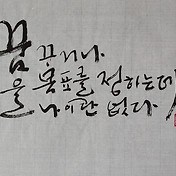 꿈을 꾸거나
목표를 정하는데
나이란 없다